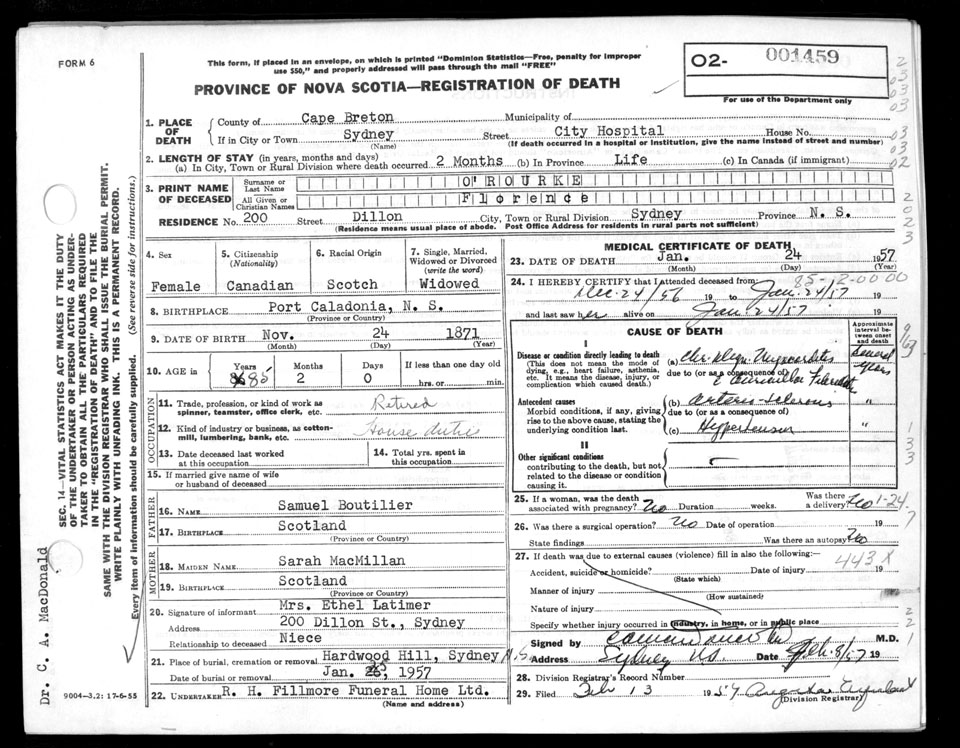 FORM 6
This form, if placed in an envelope, on which is printed "Dominion Statistics—Free, penalty for improper
use $50," and properly addressed will pass through the mail "FREE"
O2- 001459
For use of the Department only
PROVINCE OF NOVA SCOTIA—REGISTRATION OF DEATH
1. PLACE OF DEATH
County of Cape Breton Municipality of
If in City or Town Sydney Street City Hospital House No.
(Name) (If death occurred in a hospital or institution, give the name instead of street and number)
2. LENGTH OF STAY (in years, months and days)
(a) In City, Town or Rural Division where death occurred 2 Months (b) In Province Life (c) In Canada (if immigrant)
3. PRINT NAME OF DECEASED
Surname or Last Name O'ROURKE
All Given or Christian Names Florence
RESIDENCE No. 200 Street Dillon City, Town or Rural Division Sydney Province N. S.
(Residence means usual place of abode. Post Office Address for residents in rural parts not sufficient)
4. Sex
Female
5. Citizenship (Nationality)
Canadian
6. Racial Origin
Scotch
7. Single, Married, Widowed or Divorced (write the word)
Widowed
8. BIRTHPLACE Port Caladonia, N. S.
(Province or Country)
9. DATE OF BIRTH Nov. 24 1871
(Month) (Day) (Year)
10. AGE in Years Months Days If less than one day old
85 2 0 hrs. or min.
OCCUPATION
11. Trade, profession, or kind of work as spinner, teamster, office clerk, etc. Retired
12. Kind of industry or business, as cotton-mill, lumbering, bank, etc. House duties
13. Date deceased last worked at this occupation
14. Total yrs. spent in this occupation
15. If married give name of wife or husband of deceased
FATHER
16. NAME Samuel Boutilier
17. BIRTHPLACE Scotland
(Province or Country)
MOTHER
18. MAIDEN NAME Sarah MacMillan
19. BIRTHPLACE Scotland
(Province or Country)
20. Signature of informant Mrs. Ethel Latimer
Address 200 Dillon St., Sydney
Relationship to deceased Niece
21. Place of burial, cremation or removal Hardwood Hill, Sydney N.S.
Date of burial or removal Jan. , 1957
22. UNDERTAKER R. H. Fillmore Funeral Home Ltd.
(Name and address)
MEDICAL CERTIFICATE OF DEATH
23. DATE OF DEATH Jan. 24 1957
(Month) (Day) (Year)
24. I HEREBY CERTIFY that I attended deceased from:
Dec 24/56 19 to Jan 24/57 19
and last saw her alive on Jan 24/57 19
CAUSE OF DEATH
Approximate interval between onset and death
I
Disease or condition directly leading to death
(This does not mean the mode of dying, e.g., heart failure, asthenia, etc. It means the disease, injury, or complication which caused death.)
(a) Myocarditis Several years
due to (or as a consequence of)
Antecedent causes
Morbid conditions, if any, giving rise to the above cause, stating the underlying condition last.
(b) Arterio-sclerosis "
due to (or as a consequence of)
(c) Hypertension "
II
Other significant conditions
contributing to the death, but not related to the disease or condition causing it.
25. If a woman, was the death associated with pregnancy? No Duration weeks. Was there a delivery? No
1-24-7
26. Was there a surgical operation? No Date of operation 19
State findings Was there an autopsy No
27. If death was due to external causes (violence) fill in also the following:
443 X
Accident, suicide or homicide? Date of injury 19
(State which)
Manner of injury
(How sustained)
Nature of injury
Specify whether injury occurred in industry, in home, or in public place
Signed by M.D.
Address Sydney NS. Date Feb. 8/57 19
28. Division Registrar's Record Number
29. Filed Feb 13 1957
(Division Registrar)
9004-3.2: 17-6-55
Dr. C. A. MacDonald
SEC. 14—VITAL STATISTICS ACT MAKES IT THE DUTY
OF THE UNDERTAKER OR PERSON ACTING AS UNDER-
TAKER TO OBTAIN ALL THE PARTICULARS REQUIRED
IN THE "REGISTRATION OF DEATH" AND TO FILE THE
SAME WITH THE DIVISION REGISTRAR WHO SHALL ISSUE THE BURIAL PERMIT.
WRITE PLAINLY WITH UNFADING INK. THIS IS A PERMANENT RECORD.
Every item of information should be carefully supplied. (See reverse side for instructions.)